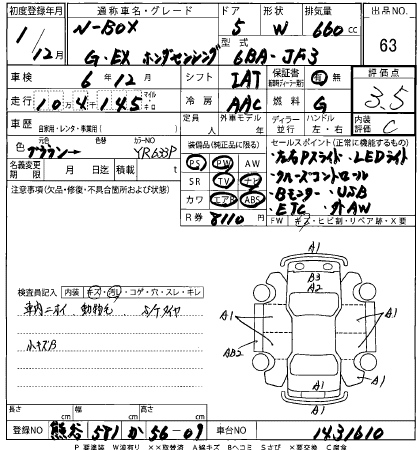 初度登録年月 通称車名・グレード ドア 形状 排気量 出品NO.
1/12月 N-BOX 5 W 660cc 63
G・EX ホンダセンシング 型式 6BA-JF3
車検 6年12月 シフト IAT 保証書 有 無 評価点
走行 10万4千145 マイル キロ 冷房 AAC 燃料 G 3.5
車歴 自家用・レンタ・事業用( ) 定員 人 外車モデル 年 ディーラー 並行 ハンドル 左・右 内装評価 C
元色 色替 カラーNO 装備品(純正品に限る) セールスポイント(正常に機能するもの)
ブラウン→ YR633P PS PW AW 左右PスライドLEDライト
名義変更期限 月 日迄 積載量 t SR TV ナビ ・クルーズコントロール
注意事項(欠品・修復・不具合箇所および状態) カワ エアB ABS ・Bモニター・USB
R券 8110円 ・ETC ・社外AW
FW キズ・ヒビ割・リペア跡・X要
検査員記入 内装 キズ・汚レ・コゲ・穴・スレ・キレ
車内ニオイ 動物毛 スノータイヤ
小キズB
A1
B3
A2
A1
A1
A1
AB2
A1
A1
A1
長さ cm 幅 cm 高さ cm
登録NO 熊谷 581 か 56-09 車台NO 1431610
P 要塗装 W波有り ××取替済 A線キズ Bヘコミ Sさび ×要交換 C腐食